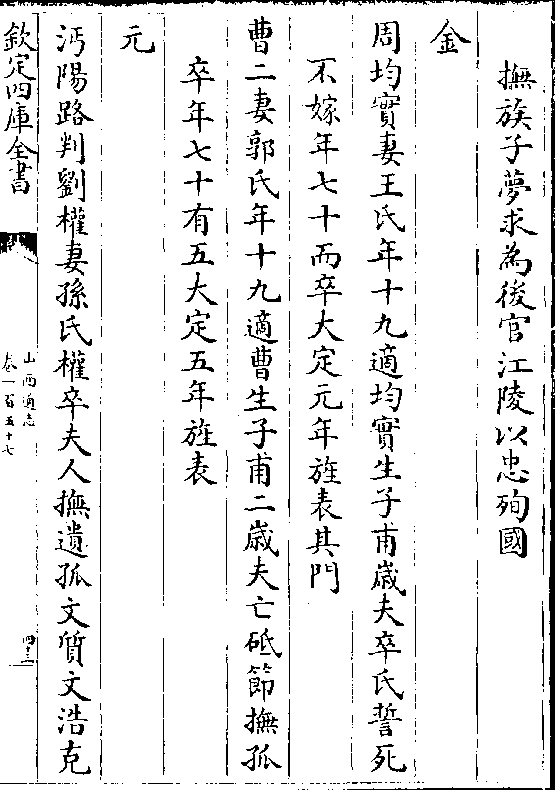 撫族子夢求為後官江陵以忠殉國
金
周均實妻王氏年十九適均實生子甫歲夫卒氏誓死
不嫁年七十而卒大定元年旌表其門
曹二妻郭氏年十九適曹生子甫二歲夫亡砥節撫孤
卒年七十有五大定五年旌表
元
沔陽路判劉權妻孫氏權卒夫人撫遺孤文質文浩克
欽定四庫全書
山西通志
卷一百五十七
四十三